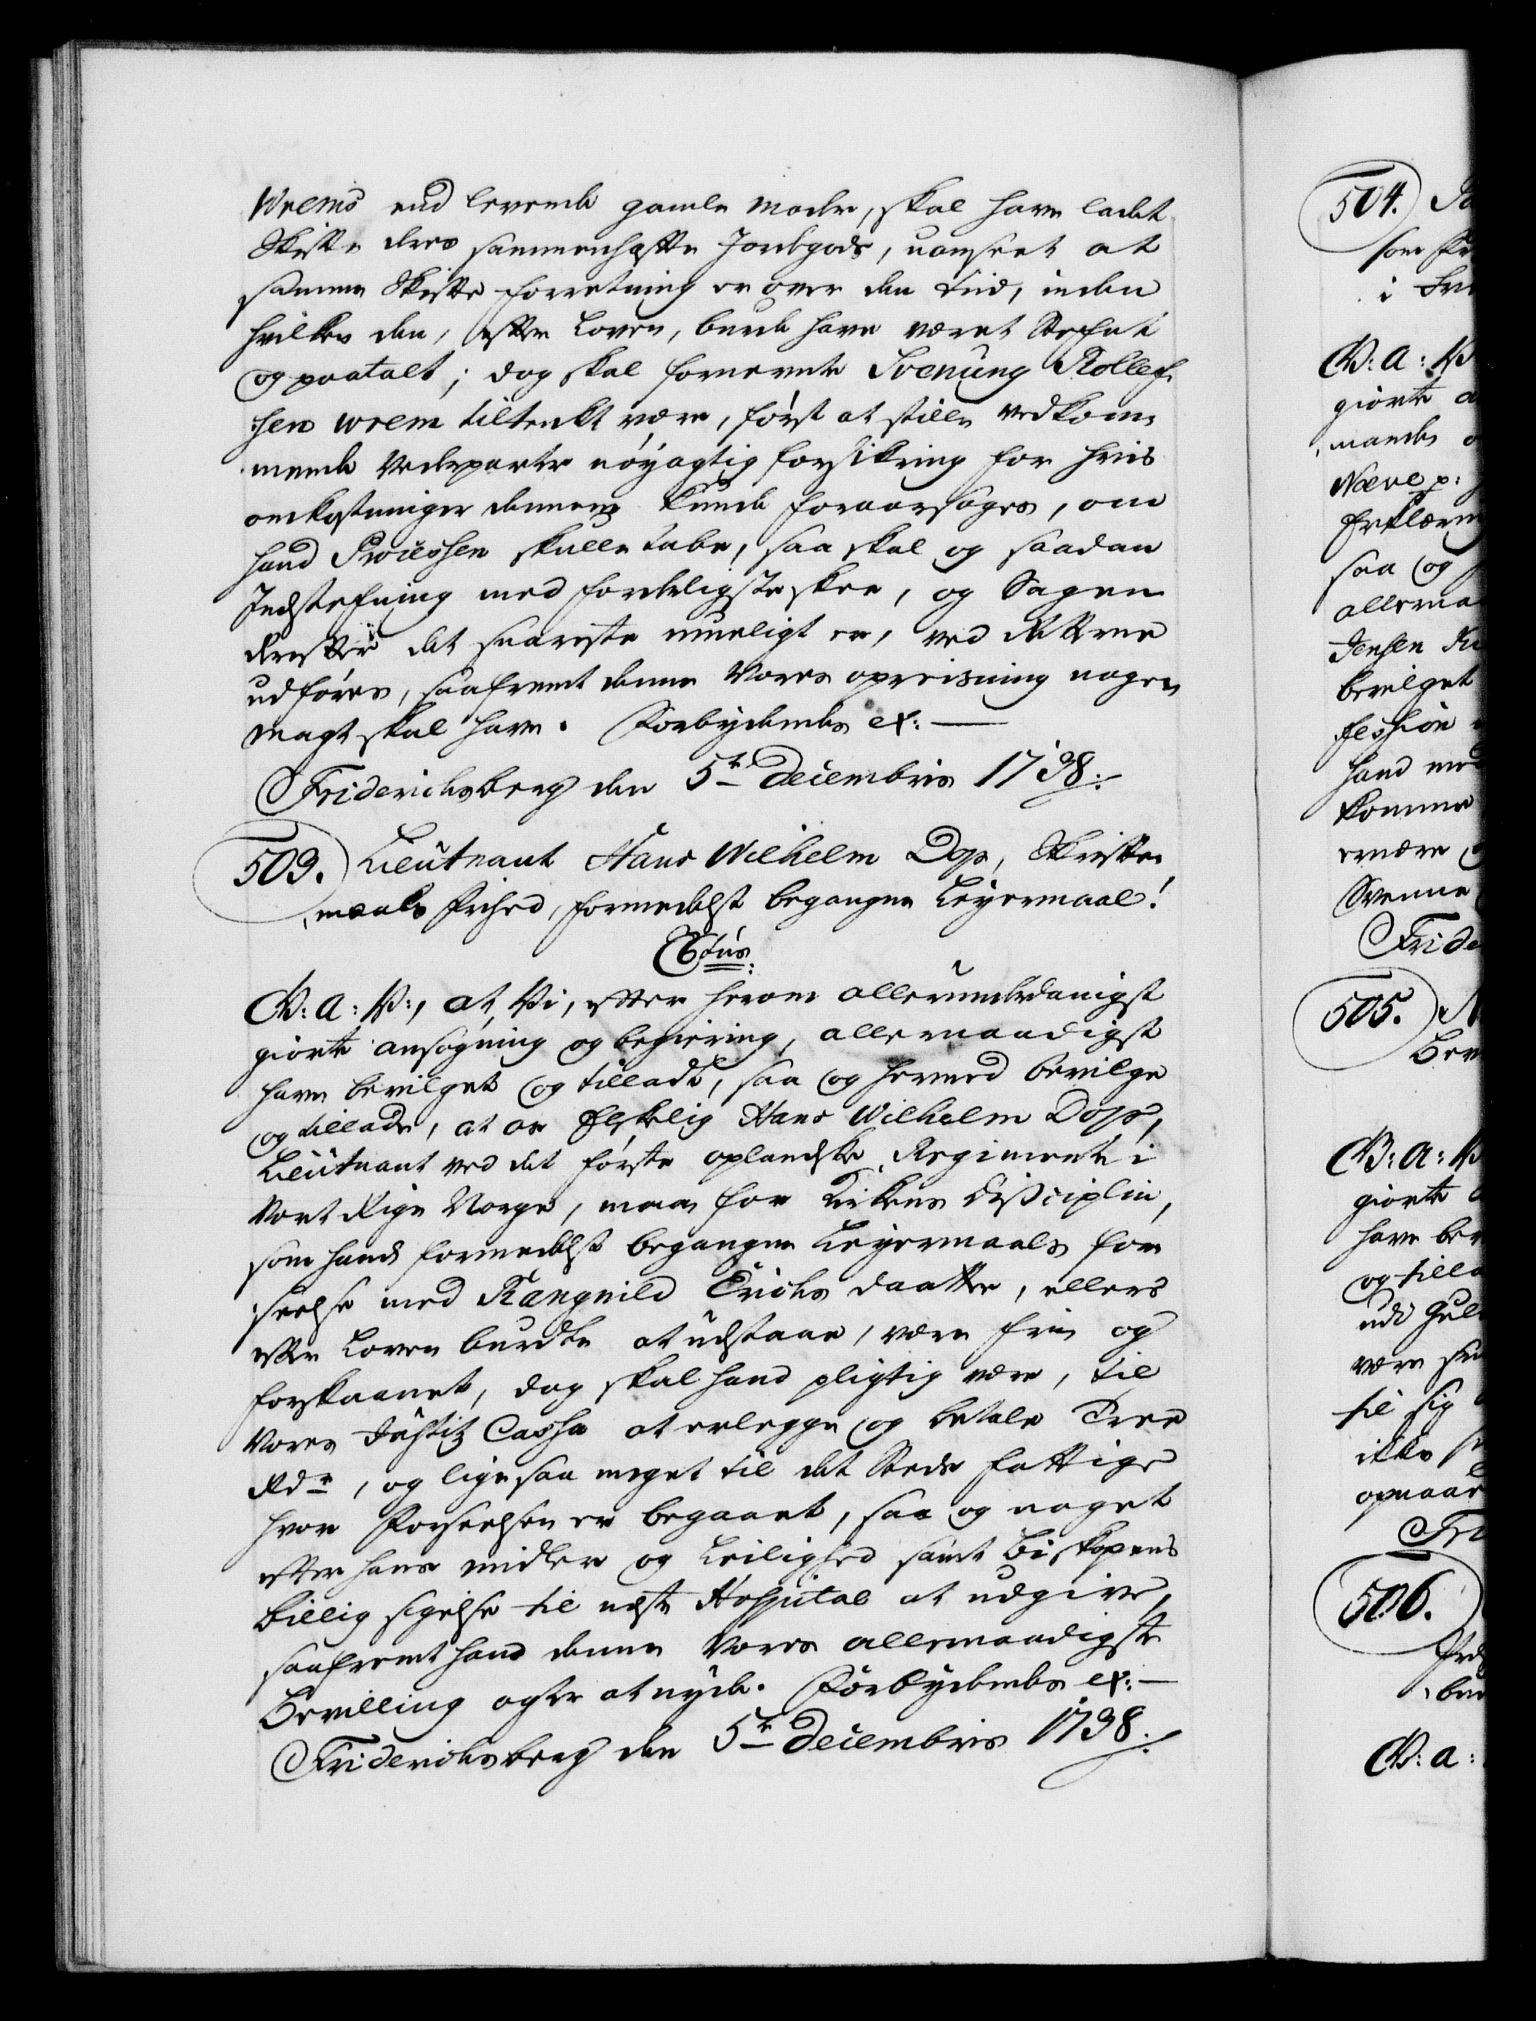 Wrems end levende gamle moder, skal have ladet
Skifte deres sammenhefte Jordegods, uanseet at
samme Skifte forretning er over den tiid, inden
hvilken den, efter Loven, burde have været Stefnt
og paatalt; dog skal fornevnte Svenung Rollef-
sen wrem tiltenkt være, først at stille vedkom-
mende Vederparter nöyagtig forsikring for hvis
omkostninger dennem kunde foraarsages, om
hand Processen skulle tabe, saa skal og saadan
Indstefning med forderligste skee, og Sagen
derefter det snareste mueligt er, ved Retterne
udføres, saafremt denne Vores opreisning nogen
magt skal have. Forbydendes etc: —
Friderichsberg den 5te Decembris 1738.
503. Lieutnant Hans Wilhelm Dop, Skrifte-
maals frihed, formedelst begangne Leyermaal!
C6tus.
G: A: V:, at Vi, efter herom allerunderdanigst
giorte ansøgning og begiering, allernaadigst
have bevilget og tilladt, saa og hermed bevilge
og tillade, at os Elskelig Hans Wilhelm Dop,
Lieutnant ved det første oplandske Regimente i
Vort Rige Norge, maa for Kirkens Disciplin,
som hand formedelst begangne Leyermaals for-
seelse med Rangnild Erichs daatter, ellers
efter Loven burde at udstaae, være frie og
forskaanet, dog skal hand pligtig være, til
Vores Justitz Cassa at erlegge og betale Tree
Rdr, og lige saa meget til det Steds fattige
hvor Forseelsen er begaaet, saa og noget
efter hans midler og Leilighed samt Biskopens
billig sigelse til neste Hospital at udgive,
saafremt hand denne Vores allernaadigste
Bevilling agter at nyde. Forbydendes etc: —
Friderichsberg den 5te Decembris 1738.
504.
som
i
G: A: V
giorte
mandes
Næve p:
Erklæring
saa og
allerna
Jensen
bevilget
fession
hand med
komme
ernære
Svenne
Fride
505.
Bev
G: A: V
giorte
have bev
og tilla
udi Gul
være
til sig
ikke
opnaae
Fri
506.
G: A: